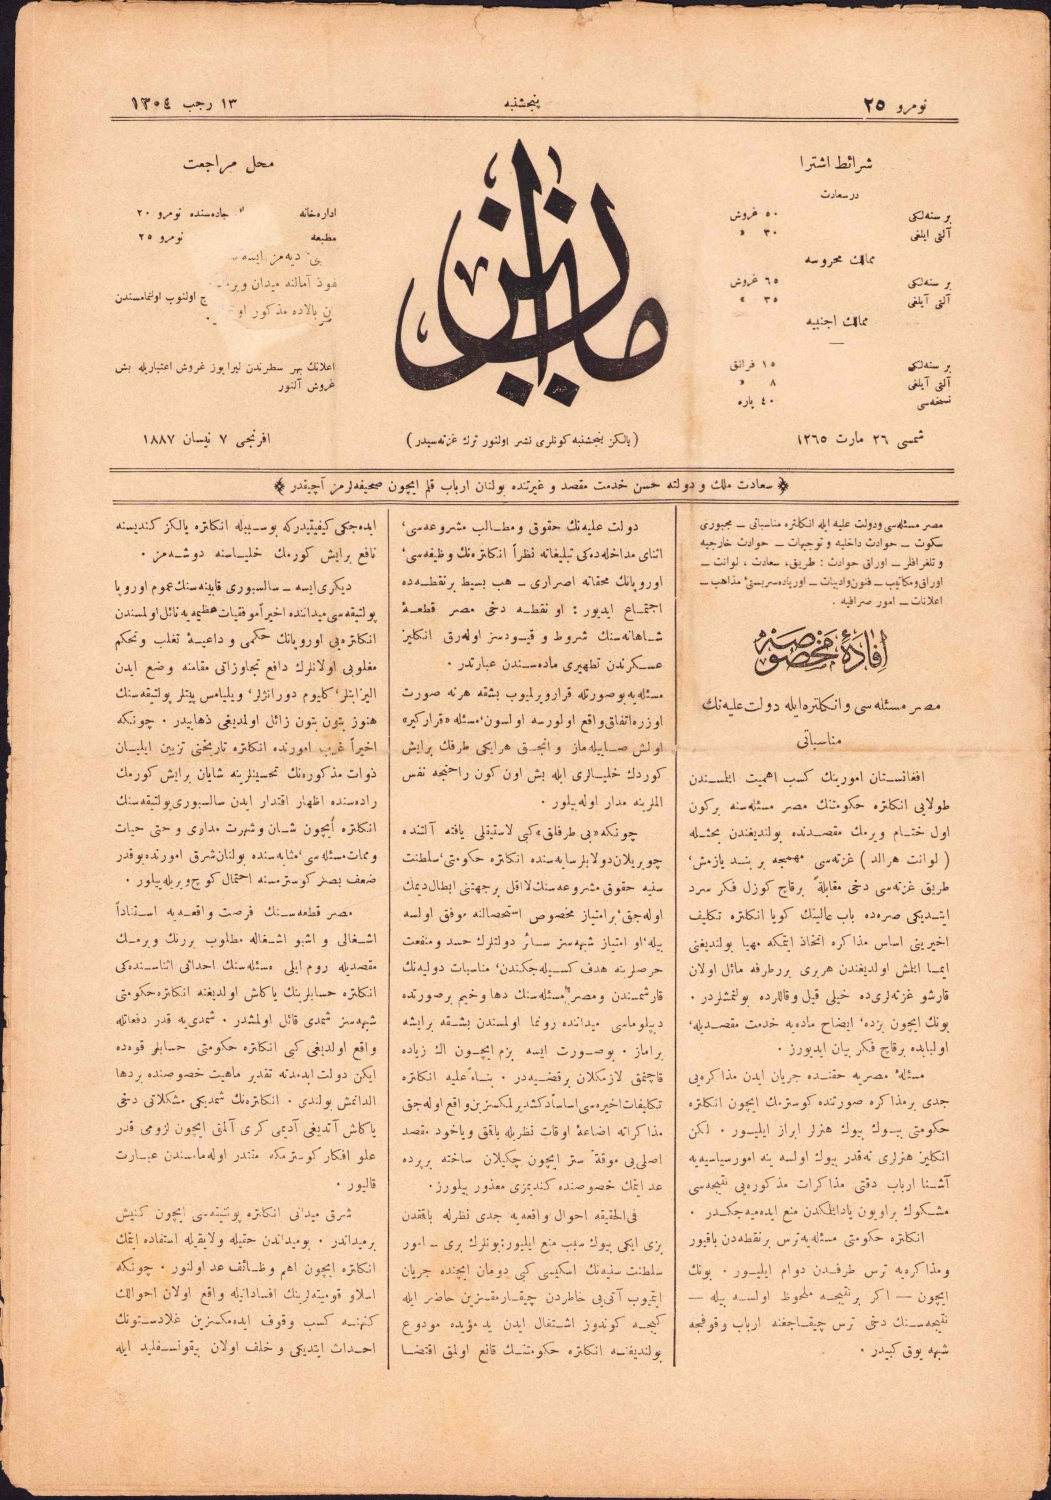 نومرو ٢٥
پنجشنبه
١٣ رجب ١٣٠٤
شرائط اشترا
درسعادت
بر سنه‌لكی ٥٠ غروش
آلتی ایلغی ٣٠ »
ممالك محروسه
بر سنه‌لكی ٦٥ غروش
آلتی آیلغی ٣٥ »
ممالك اجنبیه
بر سنه‌لكی ١٥ فرانق
آلتی آیلغی ٨ »
نسخه‌سی ٤٠ پاره
شمسی ٢٦ مارت ١٢٦٥
میزان
( یالكز پنجشنبه كونلری نشر اولنور ترك غزته‌سیدر )
محل مراجعت
اداره‌خانه جاده‌سنده نومرو ٢٠
مطبعه نومرو ٢٥
اعلانك بهر سطرندن لیرا یوز غروش اعتباریله بش
غروش آلنور
افرنجی ٧ نیسان ١٨٨٧
سعادت ملك و دولته حسن خدمت مقصد و غیرتنده بولنان ارباب قلم ایچون صحیفه‌لرمز آچیقدر
مصر مسئله‌سی ودولت علیه ایله انكلتره مناسباتی ــ مجبوری
سكوت ــ حوادث داخلیه و توجیهات ــ حوادث خارجیه
و تلغرافلر ــ اوراق حوادث : طریق، سعادت ، لوانت ــ
اوراق ومكاتیب ــ فنون وادبیات ــ اورپاده سربستئ مذاهب ــ
اعلانات ــ امور صرافیه .
افادهٔ مخصوصه
مصر مسئله‌سی و انكلتره ایله دولت علیه‌نك
مناسباتی
افغانستان امورینك كسب اهمیت ایتمسندن
طولایی انكلتره حكومتنك مصر مسئله‌سنه بركون
اول ختام ویرمك مقصدنده بولندیغندن بحثله
( لوانت هرالد ) غزته‌سی مهمجه بر بند یازمش،
طریق غزته‌سی دخی مقابلةً برقاچ كوزل فكر سرد
ایتدیكی صره‌ده باب عالینك كویا انكلتره تكلیف
اخیرینی اساس مذاكره اتخاذ ایتمكه مهیا بولندیغنی
ایما ایتمش اولدیغندن هربری بررطرفه مائل اولان
قارشو غزته‌لری‌ده خیلی قیل وقاللرده بولنمشلردر .
بونك ایچون بزده، ایضاح ماده‌یه خدمت مقصدیله،
اولبابده برقاچ فكر بیان ایدیورز .
مسئلهٔ مصریه حقنده جریان ایدن مذاكره‌یی
جدی برمذاكره صورتنده كوسترمك ایچون انكلتره
حكومتی بیوك بیوك هنرلر ابراز ایلیور . لكن
انكلیز هنرلری نه‌قدر بیوك اولسه ینه امور سیاسیه‌یه
آشنا ارباب دقتی مذاكرات مذكوره‌یی نتیجه‌سی
مشكوك براویون یادایتمكدن منع ایده‌میه‌جكدر .
انكلتره حكومتی مسئله‌یه ترس برنقطه‌دن باقیور
ومذاكره‌یه ترس طرفدن دوام ایلیور . بونك
ایچون — اكر برنتیجه ملحوظ اولسه بیله —
نتیجه‌سنك دخی ترس چیقاجغنه ارباب وقوفجه
شبهه یوق كبیدر .
دولت علیه‌نك حقوق ومطالب مشروعه‌سی،
اثنای مداخله‌ده‌كی تبلیغاته نظراً انكلتره‌نك وظیفه‌سی،
اوروپانك محقانه اصراری ــ هب بسیط برنقطه‌ده
اجتماع ایدیور : او نقطه دخی مصر قطعهٔ
شاهانه‌سنك شروط و قیودسز اوله‌رق انكلیز
عسكرندن تطهیری ماده‌سندن عبارتدر .
مسئله‌یه بوصورتله قرارویرلمیوب بشقه هرنه صورت
اوزره اتفاق واقع اولورسه اولسون، مسئله «قرارگیر»
اولمش صاییله‌ماز و انجق هرایكی طرفك برایش
كوردك خلیالری ایله بش اون كون راحتجه نفس
المارینه مدار اوله‌بیلور .
چونكه «بی طرفلق» كبی لاستیقلی یافته آلتنده
چوریلان دولابلر سایه‌سنده انكلتره حكومتی، سلطنت
سنیه حقوق مشروعه‌سنك لااقل برجهتنی ابطال دیمك
اوله‌جق، برامتیاز مخصوص استحصالنه موفق اولسه
بیله، او امتیاز شبهه‌سز سائر دولتلرك حسد ومنفعت
حرصلرینه هدف كسیله‌جكندن، مناسبات دولیه‌نك
قارشمسندن ومصر مسئله‌سنك دها وخیم برصورتده
دیپلوماسی میداننده رونما اولمسندن بشقه برایشه
یراماز . بوصورت ایسه بزم ایچون اك زیاده
قاچنمق لازمكلان برقضیه‌در . بناءً علیه انكلتره
تكلیفات اخیره‌سی اساساً دكشدیرلمكسزین واقع اوله‌جق
مذاكراته اضاعهٔ اوقات نظریله باقق ویاخود مقصد
اصلی‌یی موقةً ستر ایچون چكیلان ساخته برپرده
عد ایتمك خصوصنده كندیمزی معذور بیلورز.
فی‌الحقیقه احوال واقعه‌یه جدی نظرله باققدن
بزی ایكی بیوك سبب منع ایلیور: بونلرك بری ــ امور
سلطنت سنیه‌نك اسكیسی كبی دومان ایچنده جریان
ایتمیوب آتی‌یی خاطردن چیقارمقسزین حاضر ایله
كیجه كوندوز اشتغال ایدن ید مؤیده مودوع
بولندیغنه انكلتره حكومتنك قانع اولمق اقتضا
ایده‌جكی كیفیتیدركه بوسببله انكلتره یالكز كندیسنه
نافع برایش كورمك خلیاسنه دوشه‌مز .
دیكری ایسه ــ سالسبوری قابینه‌سنك عموم اوروپا
پولتیقه‌سی میداننده اخیراً موفقیات عظیمه‌یه نائل اولمسندن
انكلتره‌یی اوروپانك حكمی و داعیهٔ تغلب وتحكم
مغلوبی اولانلرك دافع تجاوزاتی مقامنه وضع ایدن
الیزابتلر، كلیوم دورانژلر، ویلیامس پیتلر پولتیقه‌سنك
هنوز بتون بتون زائل اولمدیغی ذهابیدر . چونكه
اخیراً غرب امورنده انكلتره تاریخنی تزیین ایلیان
ذوات مذكوره‌نك تحسینلرینه شایان برایش كورمك
راده‌سنده اظهار اقتدار ایدن سالسبوری پولتیقه‌سنك
انكلتره ایچون شان وشهرت مداری و حتی حیات
وممات مسئله‌سی مثابه‌سنده بولنان شرق امورنده بوقدر
ضعف بصر كوسترمسنه احتمال كوچ ویریله‌بیلور .
مصر قطعه‌سنك فرصت واقعه‌یه استناداً
اشغالی و اشبو اشغاله مطلوب بررنك ویرمك
مقصدیله روم ایلی مسئله‌سنك احداثی اثناسنده‌كی
انكلتره حسابلرینك یاكاش اولدیغنه انكلتره حكومتی
شبهه‌سز شمدی قائل اولمشدر . شمدی‌یه قدر دفعاتله
واقع اولدیغی كبی انكلتره حكومتی حسابلو قوه‌ده
ایكن دولت ابدمدته تقدیر ماهیت خصوصنده بردها
الدانمش بولندی . انكلتره‌نك شمدیكی مشكلاتی دخی
یاكاش آتدیغی آدیمی كری آلمنی ایچون لزومی قدر
علو افكار كوسترمكه مقتدر اوله‌مامسندن عبارت
قالیور .
شرق میدانی انكلتره پولتیقه‌سی ایچون كنیش
برمیداندر . بومیداندن حقیله ولایقیله استفاده ایتمك
انكلتره ایچون اهم وظائف عد اولنور . چونكه
اسلاو قومیته‌لرینك افساداتیله واقع اولان احوالك
كنهنه كسب وقوف ایده‌مكسزین غلادستونك
احداث ایتدیكی و خلف اولان بیقونسفلید ایله